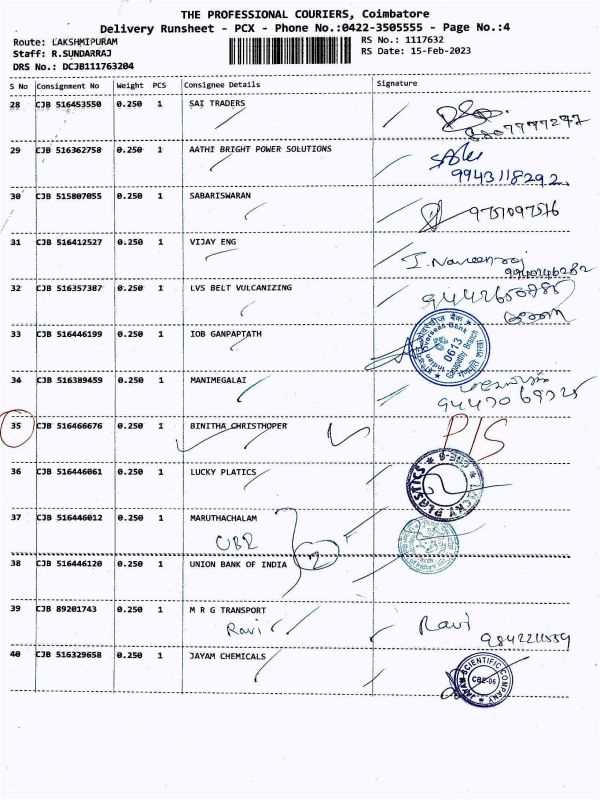 THE PROFESSIONAL COURIERS, Coimbatore
Delivery Runsheet - PCX - Phone No.:0422-3505555 - Page No.:4
Route: LAKSHMIPURAM
Staff: R.SUNDARRAJ
DRS No.: DCJB111763204
RS No.: 1117632
RS Date: 15-Feb-2023
S No Consignment No Weight PCS Consignee Details Signature
28 CJB 516453550 0.250 1 SAI TRADERS
29 CJB 516362758 0.250 1 AATHI BRIGHT POWER SOLUTIONS
9943118292
30 CJB 515807055 0.250 1 SABARISWARAN
9751097576
31 CJB 516412527 0.250 1 VIJAY ENG
I. Naveenraj
32 CJB 516357387 0.250 1 LVS BELT VULCANIZING
33 CJB 516446199 0.250 1 IOB GANPAPTATH
0613
34 CJB 516389459 0.250 1 MANIMEGALAI
35 CJB 516466676 0.250 1 BINITHA CHRISTHOPER
P/S
36 CJB 516446061 0.250 1 LUCKY PLATICS
LUCKY PLASTICS
37 CJB 516446012 0.250 1 MARUTHACHALAM
UBI
2
38 CJB 516446120 0.250 1 UNION BANK OF INDIA
39 CJB 89201743 0.250 1 M R G TRANSPORT
Ravi Ravi
40 CJB 516329658 0.250 1 JAYAM CHEMICALS
JAYAM SCIENTIFIC COMPANY
CBE-06